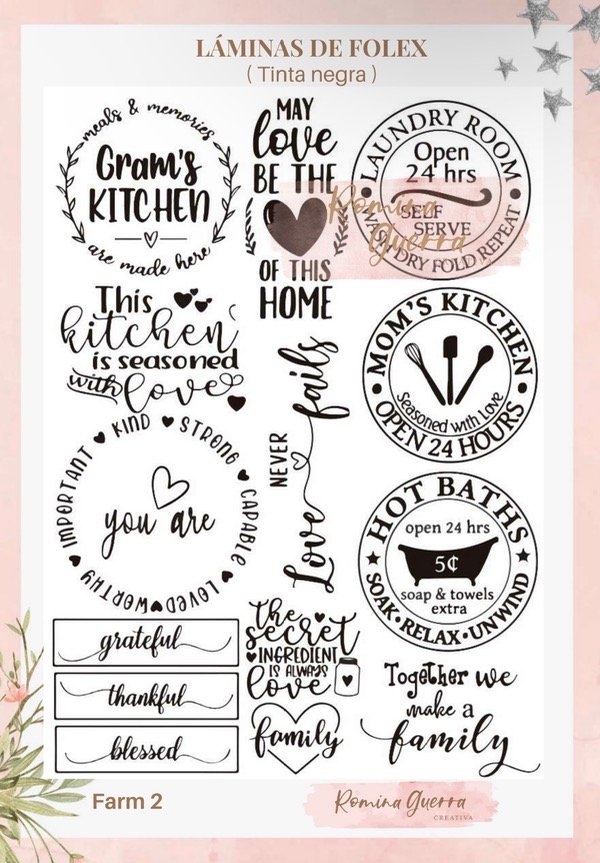 LÁMINAS DE FOLEX
( Tinta negra )
meals & memories
Gram's
KITCHEN
are made here
MAY
love
BE THE
OF THIS
HOME
LAUNDRY ROOM
Open
24 hrs
SELF
SERVE
WASH DRY FOLD REPEAT
Romina
Guerra
This
kitchen
is seasoned
with love
NEVER
Love fails
MOM'S KITCHEN
Seasoned with Love
OPEN 24 HOURS
IMPORTANT KIND STRONG CAPABLE LOVED WORTHY
you are
HOT BATHS
open 24 hrs
5¢
soap & towels
extra
SOAK • RELAX • UNWIND
grateful
thankful
blessed
the
secret
INGREDIENT
IS ALWAYS
love
family
Together we
make a
family
Farm 2
Romina Guerra
CREATIVA